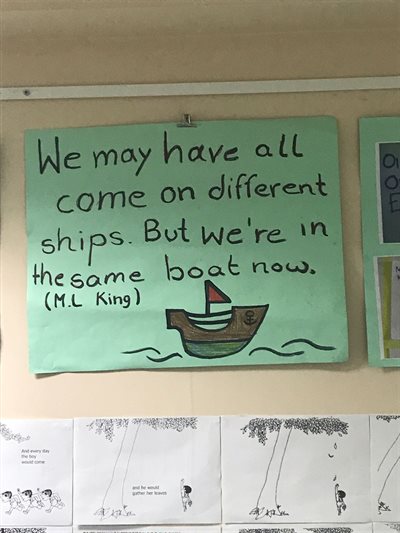 We may have all
come on different
ships. But we're in
the same boat now.
(M.L King)
And every day
the boy
would come
and he would
gather her leaves